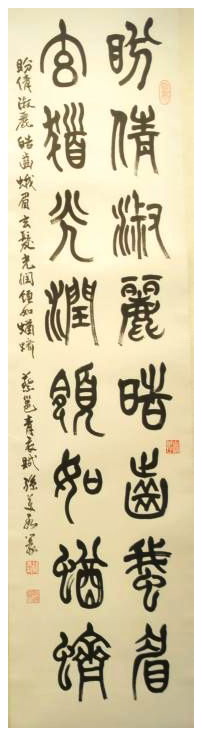 盼倩淑麗皓齒蛾眉
玄髮光潤領如蝤蠐
盼倩淑麗皓齒蛾眉玄髮光潤領如蝤蠐 蔡邕青衣賦 孫篆